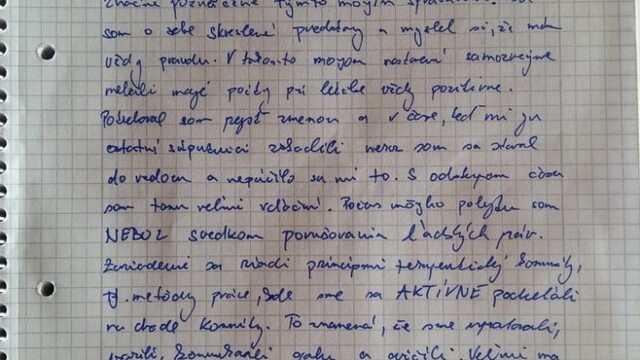 značne poznačené týmto mojím
som o sebe skreslené predstavy a myslel si, že mám
vždy pravdu. V tomto mojom nastavení samozrejme
neboli moje pocity pri liečbe vždy pozitívne.
Potreboval som prejsť zmenou a v čase, keď mi ju
ostatní súpútnici zrkadlili neraz som sa
do a nepáčilo sa mi to. S odstupom času
som tomu veľmi vďačný. Počas môjho pobytu som
NEBOL svedkom porušovania ľudských práv.
Zariadenie sa riadi princípmi terapeutickej komunity,
tj. metódy práce, kde sme sa AKTÍVNE podieľali
na chode komunity. To znamená, že sme upratovali,
varili, a cvičili. Veľmi ma